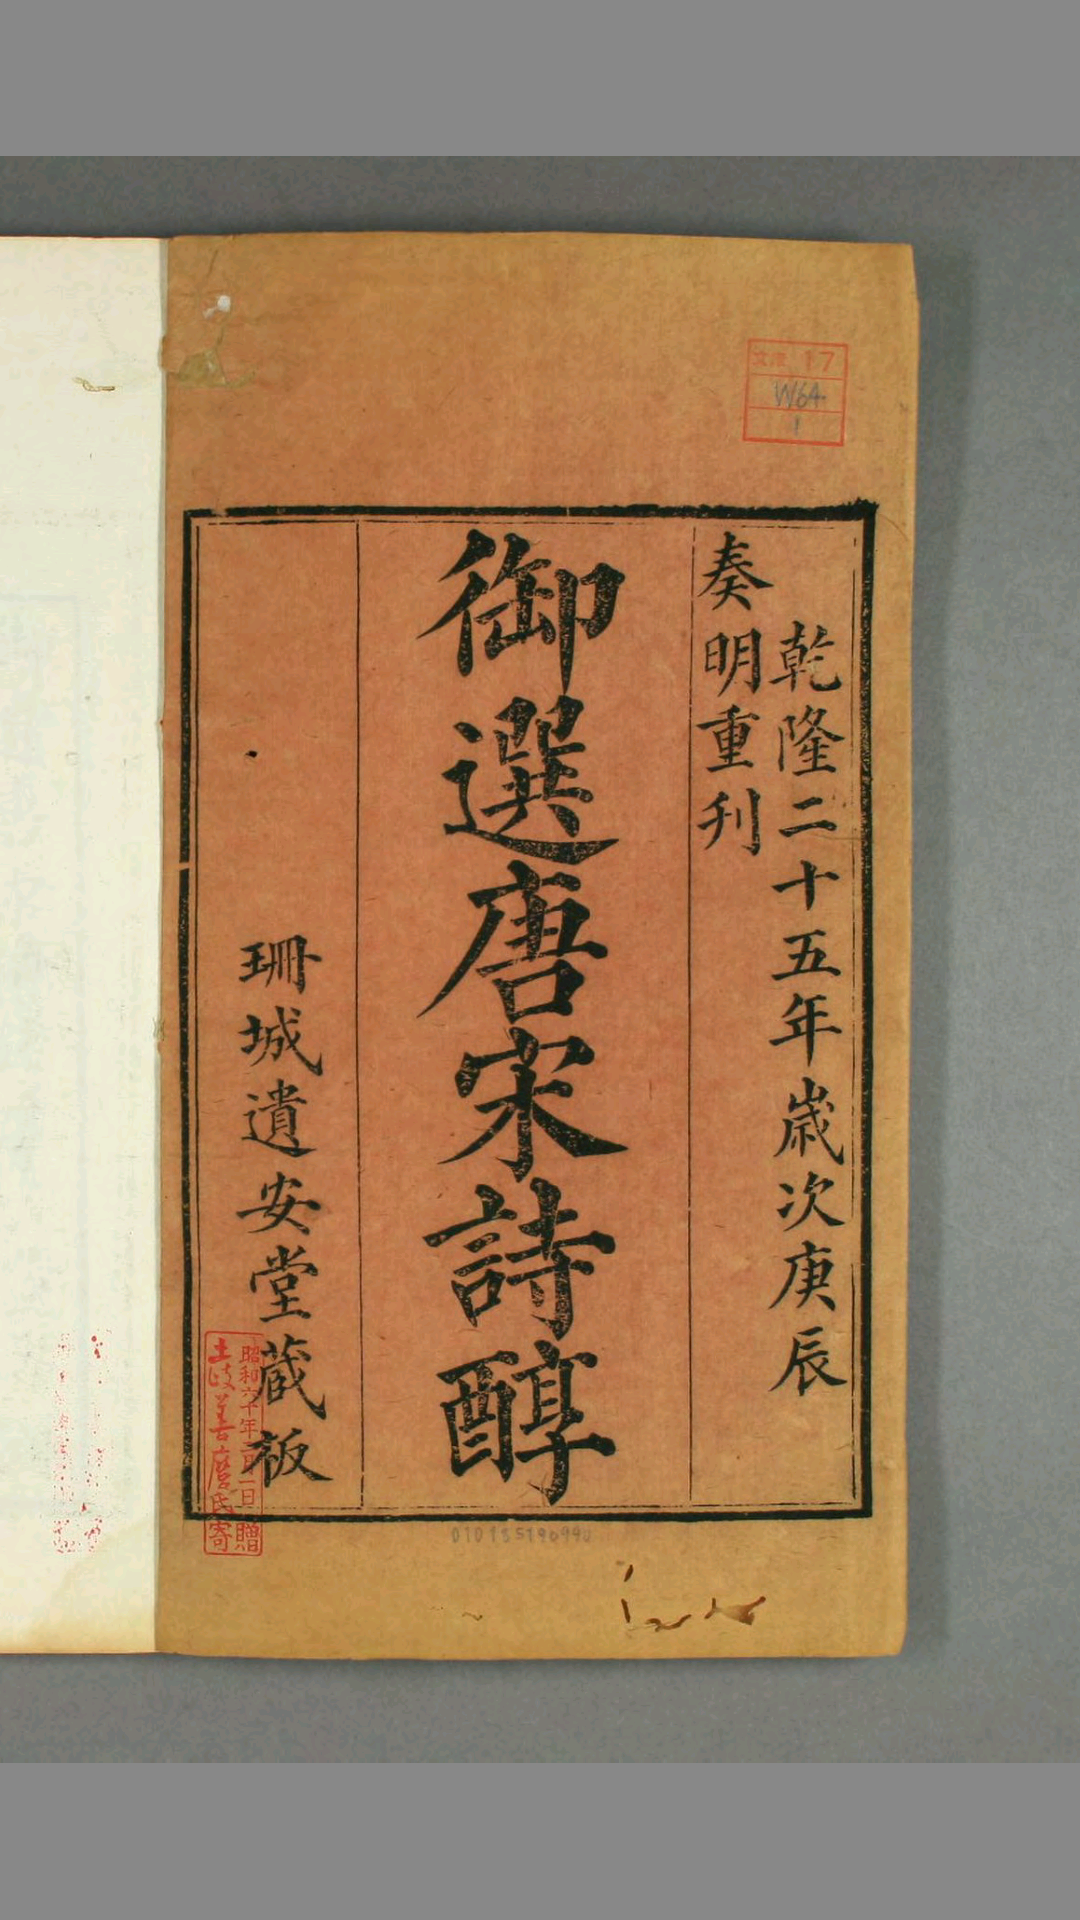 乾隆二十五年歲次庚辰
奏明重刋
御選唐宋詩醇
珊城遺安堂藏板
文庫 17
W64
1
昭和六十年二月一日
土岐善麿氏寄贈